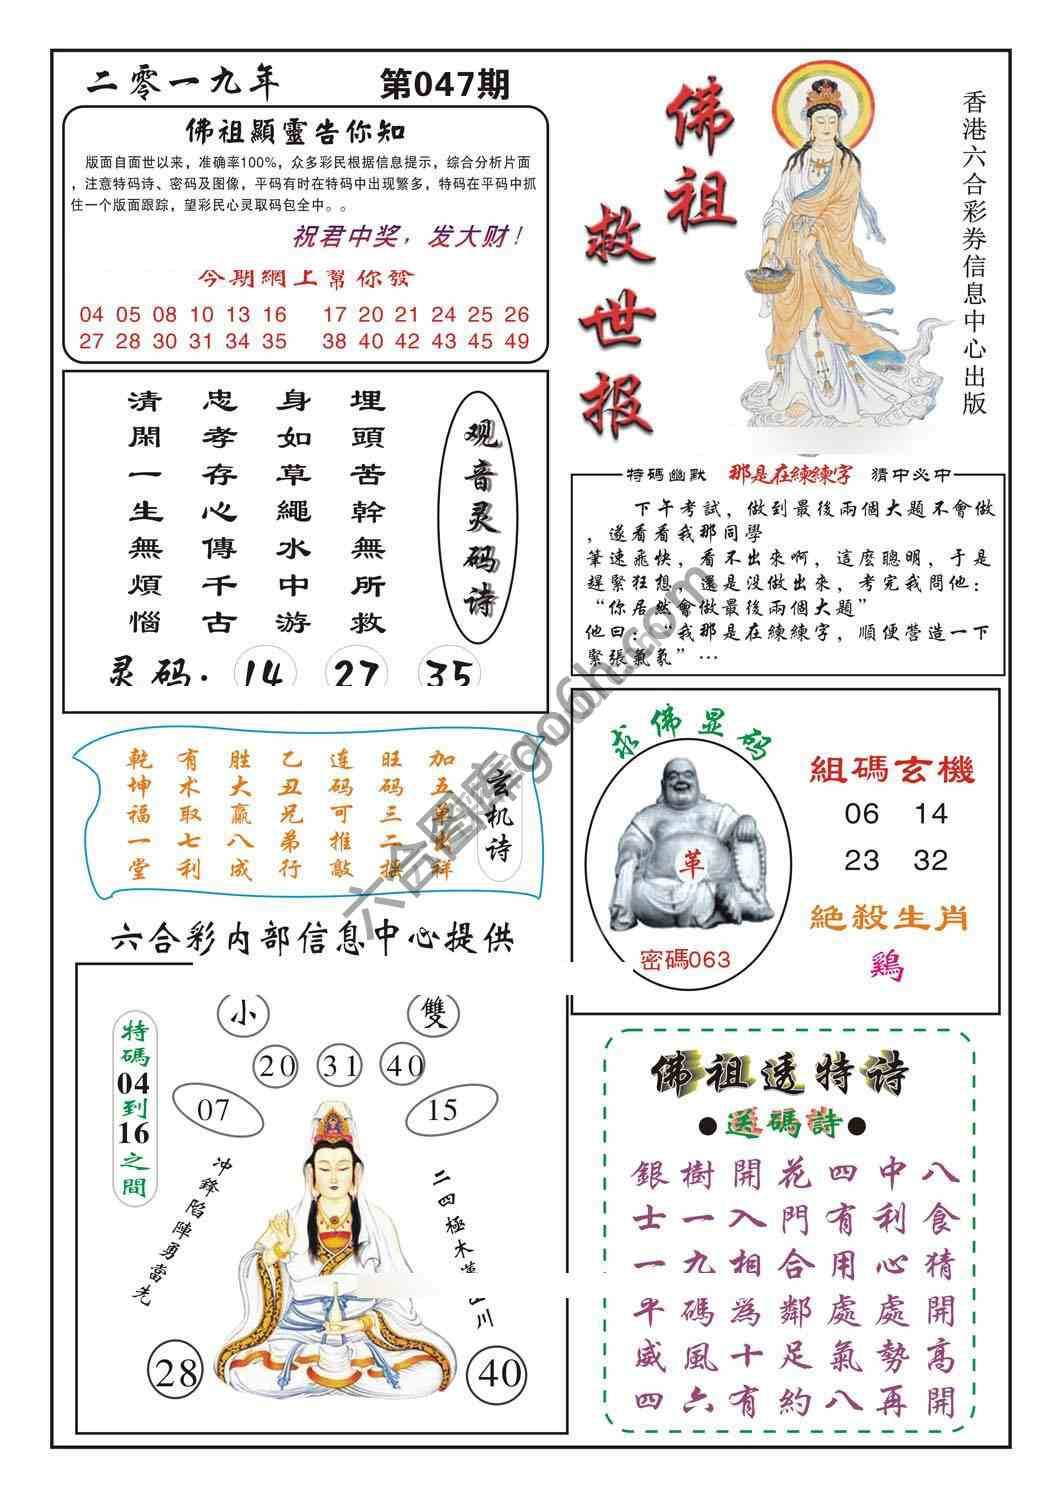 二零一九年
第047期
佛祖顯靈告你知
版面自面世以来，准确率100%，众多彩民根据信息提示，综合分析片面
，注意特码诗、密码及图像，平码有时在特码中出现繁多，特码在平码中抓
住一个版面跟踪，望彩民心灵取码包全中。。
祝君中奖，发大财！
今期網上幫你發
04 05 08 10 13 16 17 20 21 24 25 26
27 28 30 31 34 35 38 40 42 43 45 49
佛祖
救世报
香港六合彩券信息中心出版
观音灵码诗
埋頭苦幹無所救
身如草繩水中游
忠孝存心傳千古
清閑一生無煩惱
灵码：14 27 35
特碼幽默 那是在練練字 猜中必中
下午考試，做到最後兩個大題不會做
，遂看看我那同學
筆速飛快，看不出來啊，這麼聰明，于是
趕緊狂想，還是没做出來，考完我問他：
“你居然會做最後兩個大題”
他曰：“我那是在練練字，順便營造一下
緊張氣氛”…
玄机诗
加五单出祥
旺码三二摆
连码可推敲
乙丑兄弟行
胜大赢八成
有术取七利
乾坤福一堂
求佛显码
革
密碼063
組碼玄機
06 14
23 32
絶殺生肖
鷄
六合彩内部信息中心提供
特碼04到16之間
小 雙
20 31 40
07 15
冲鋒陷陣勇當先
二四極木
川
28 40
佛祖透特诗
●送碼詩●
銀樹開花四中八
士一入門有利食
一九相合用心猜
平碼為鄰處處開
威風十足氣勢高
四六有約八再開
六合图库go6h.com